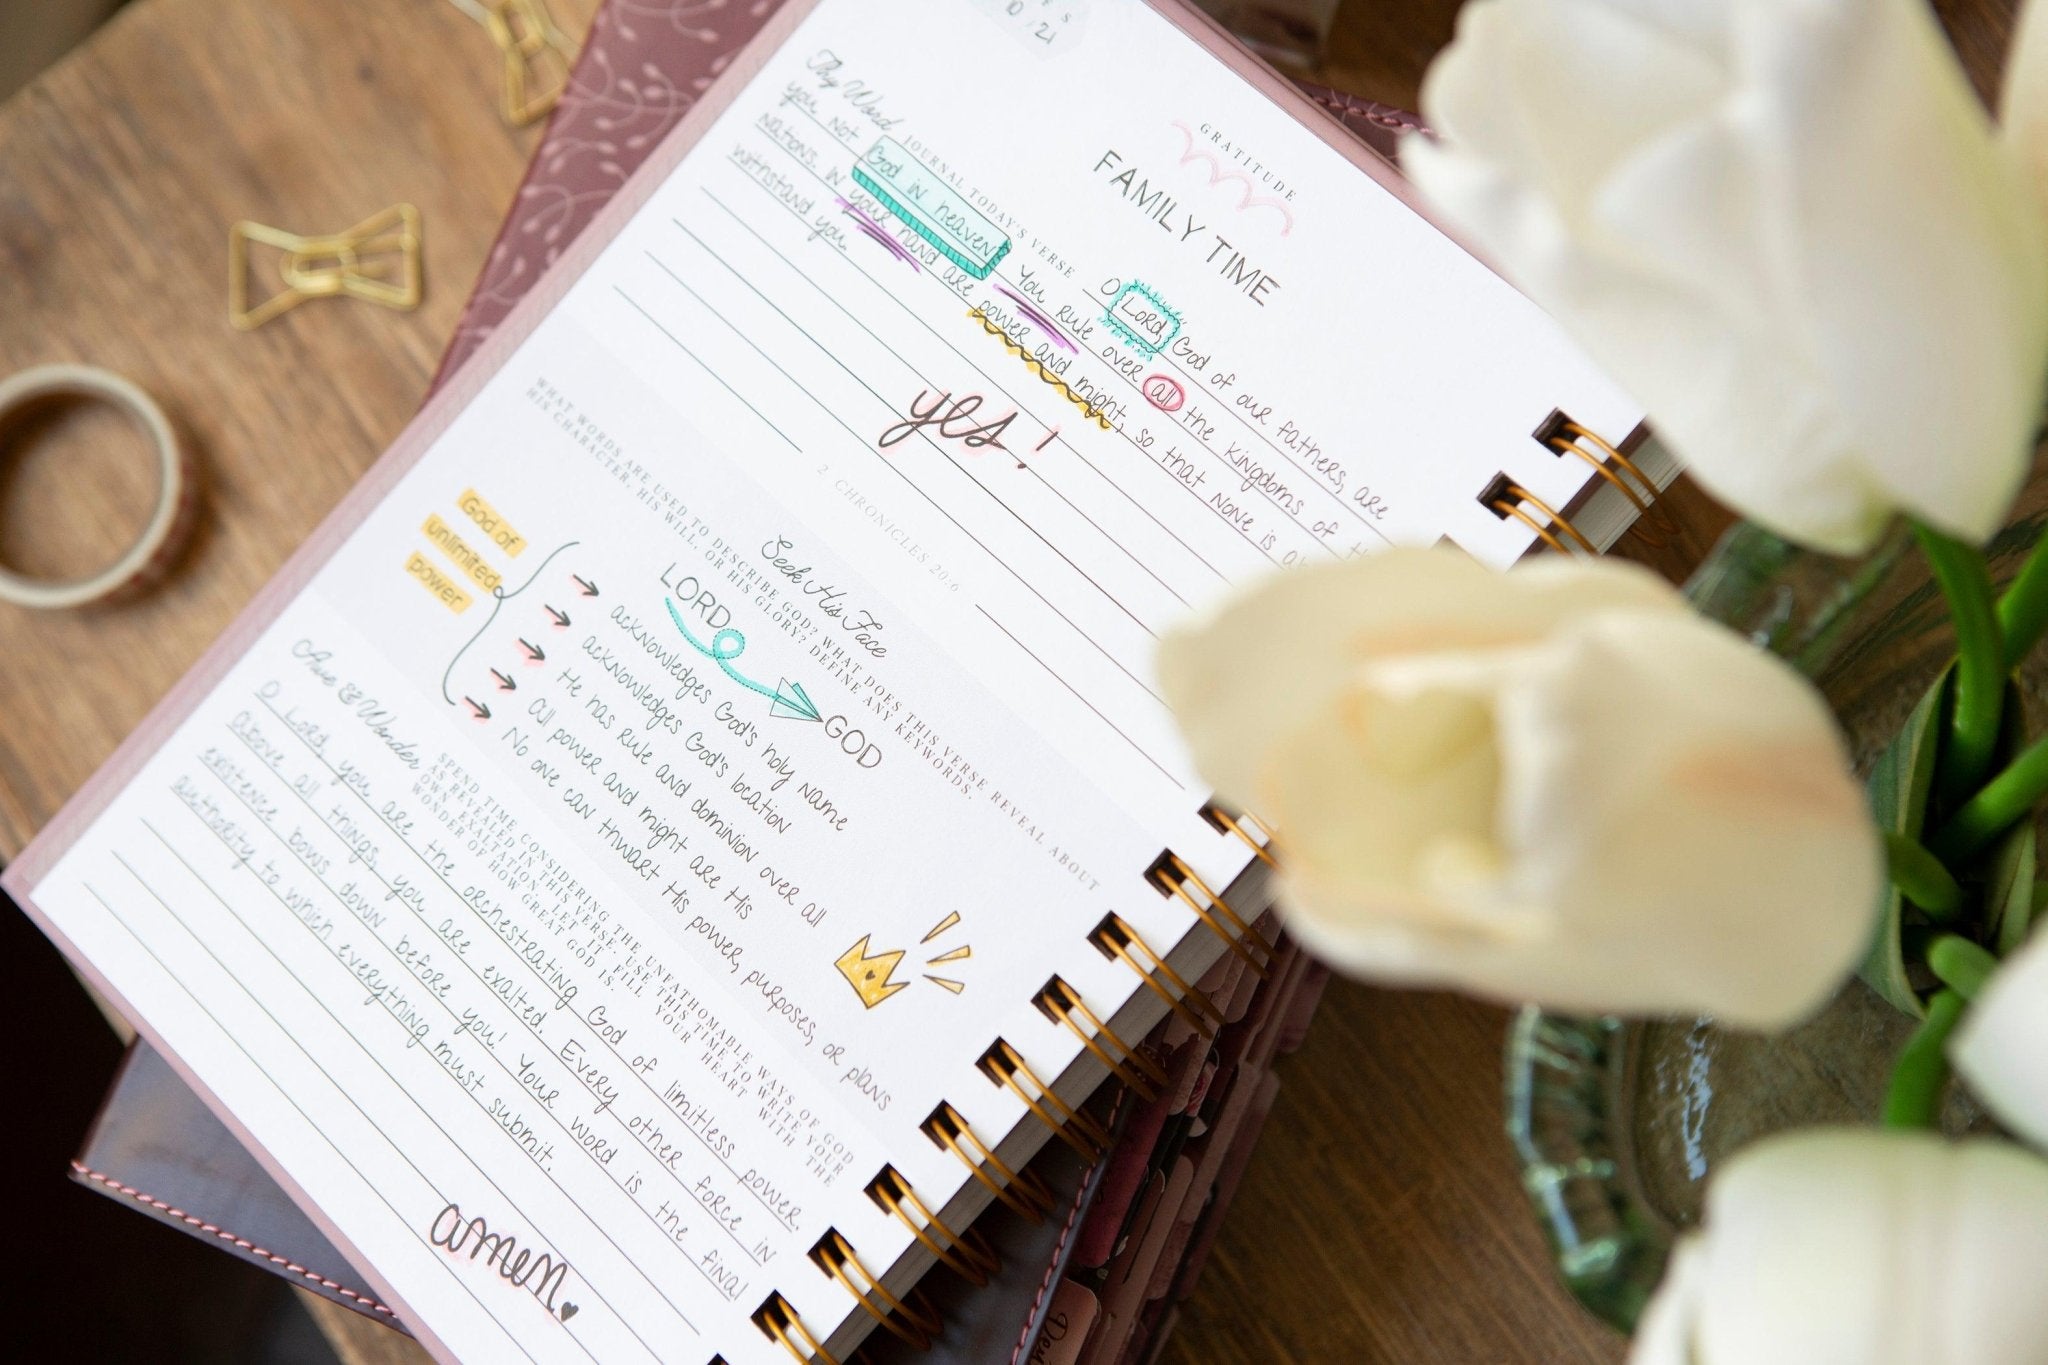 10/21
GRATITUDE
FAMILY TIME
Thy Word JOURNAL TODAY'S VERSE
O Lord, God of our fathers, are
you not God in heaven? You rule over all the kingdoms of
nations. In your hand are power and might, so that none is
withstand you.
yes!
2 CHRONICLES 20:6
Seek His Face
WHAT WORDS ARE USED TO DESCRIBE GOD? WHAT DOES THIS VERSE REVEAL ABOUT
HIS CHARACTER, HIS WILL, OR HIS GLORY? DEFINE ANY KEYWORDS.
LORD GOD
God of
unlimited
power
→ acknowledges God's holy name
→ acknowledges God's location
→ He has rule and dominion over all
→ All power and might are His
→ No one can thwart His power, purposes, or plans
Awe & Wonder
SPEND TIME CONSIDERING THE UNFATHOMABLE WAYS OF GOD
AS REVEALED IN THIS VERSE. USE THIS TIME TO WRITE YOUR
OWN EXALTATION. LET IT FILL YOUR HEART WITH THE
WONDER OF HOW GREAT GOD IS.
O Lord, you are the orchestrating God of limitless power.
Above all things, you are exalted. Every other force in
existence bows down before you! Your word is the final
authority to which everything must submit.
amen.